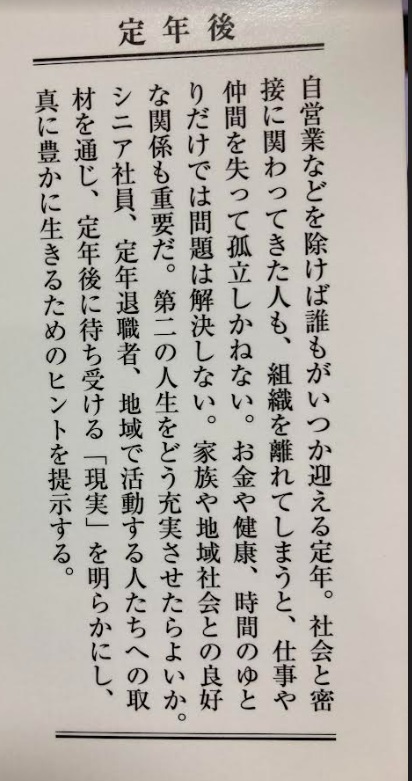 定年後
自営業などを除けば誰もがいつか迎える定年。社会と密
接に関わってきた人も、組織を離れてしまうと、仕事や
仲間を失って孤立しかねない。お金や健康、時間のゆと
りだけでは問題は解決しない。家族や地域社会との良好
な関係も重要だ。第二の人生をどう充実させたらよいか。
シニア社員、定年退職者、地域で活動する人たちへの取
材を通じ、定年後に待ち受ける「現実」を明らかにし、
真に豊かに生きるためのヒントを提示する。